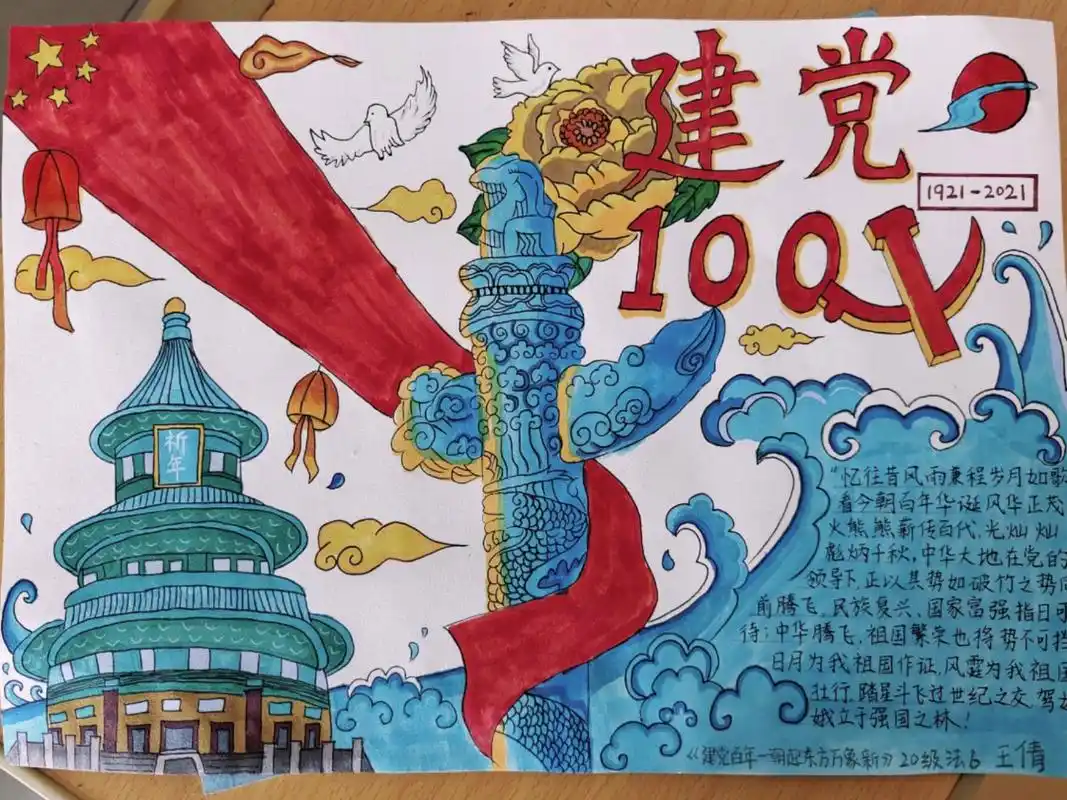 建党
1921-2021
100
祈年
"忆往昔风雨兼程岁月如歌
看今朝百年华诞风华正茂
火熊熊薪传百代,光灿灿
彪炳千秋,中华大地在党的
领导下,正以其势如破竹之势向
前腾飞,民族复兴、国家富强指日可
待;中华腾飞,祖国繁荣也将势不可挡
日月为我祖国作证,风霆为我祖国
壮行,踏星斗飞过世纪之交,驾
娥立于强国之林!
《建党百年一朝起东方万象新》20级法6 王倩